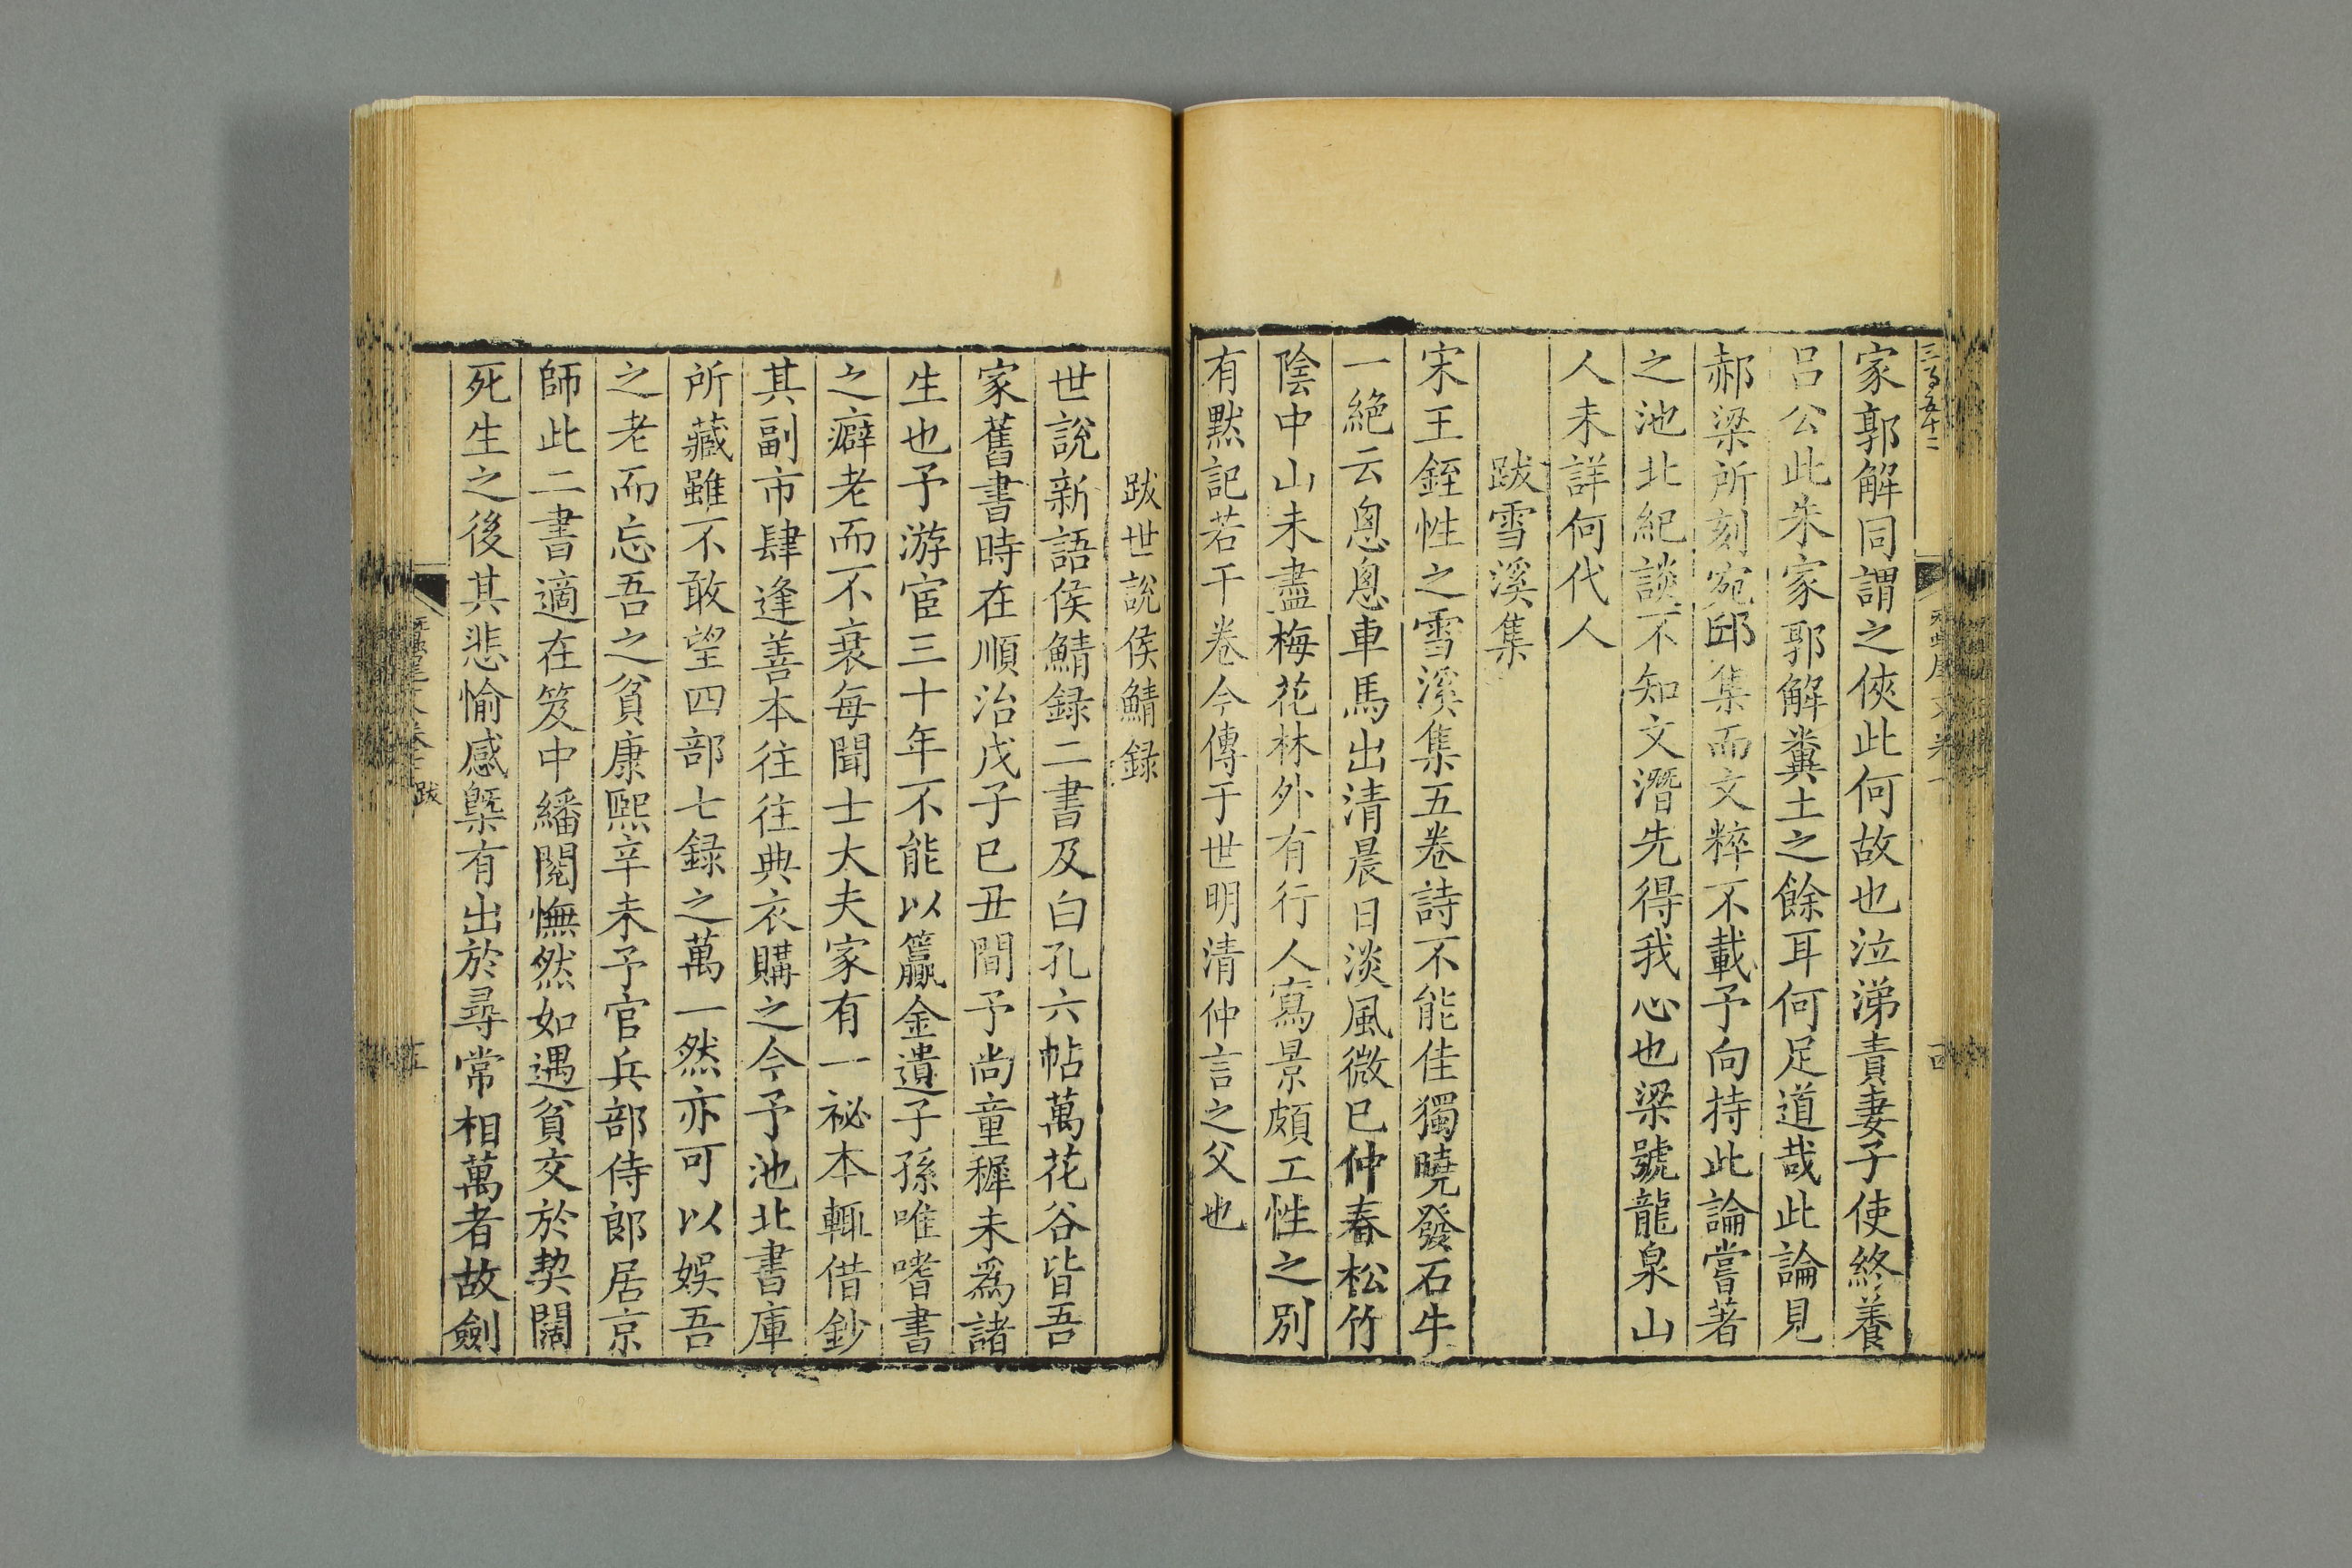 家郭解同謂之俠此何故也泣涕責妻子使終養
呂公此朱家郭解糞土之餘耳何足道哉此論見
郝梁所刻宛邱集而文粹不載予向持此論嘗著
之池北紀談不知文潛先得我心也梁號龍泉山
人未詳何代人
跋雪溪集
宋王銍性之雪溪集五卷詩不能佳獨曉發石牛
一絶云怱怱車馬出清晨日淡風微已仲春松竹
陰中山未盡梅花林外有行人寫景頗工性之別
有默記若干卷今傳于世明清仲言之父也
跋世說侯鯖録
世說新語侯鯖録二書及白孔六帖萬花谷皆吾
家舊書時在順治戊子已丑間予尚童穉未爲諸
生也予游宦三十年不能以籯金遺子孫唯嗜書
之癖老而不衰每聞士大夫家有一祕本輒借鈔
其副市肆逢善本往往典衣購之今予池北書庫
所藏雖不敢望四部七録之萬一然亦可以娱吾
之老而忘吾之貧康熙辛未予官兵部侍郎居京
師此二書適在笈中繙閱憮然如遇貧交於契闊
死生之後其悲愉感槩有出於尋常相萬者故劍
跋